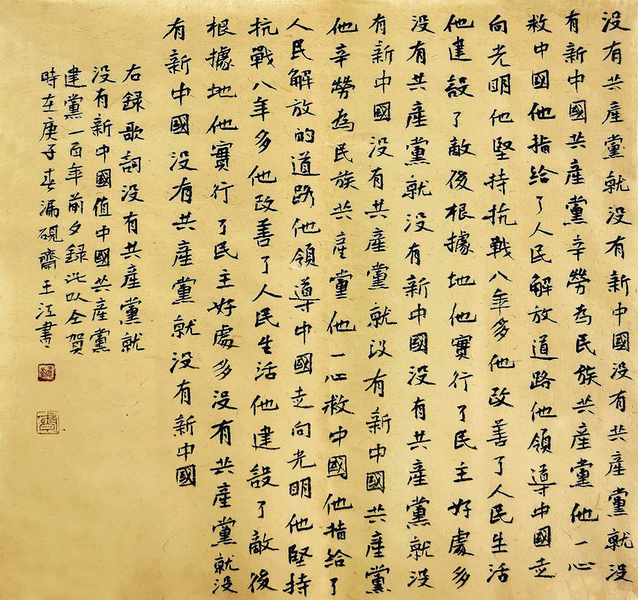 没有共產黨就没有新中國没有共產黨就没
有新中國共產黨辛勞為民族共產黨他一心
救中國他指给了人民解放道路他領導中國走
向光明他堅持抗戰八年多他改善了人民生活
他建設了敵後根據地他實行了民主好處多
没有共產黨就没有新中國没有共產黨就没
有新中國没有共產黨就没有新中國共產黨
他辛勞為民族共產黨他一心救中國他指给了
人民解放的道路他領導中國走向光明他堅持
抗戰八年多他改善了人民生活他建設了敵後
根據地他實行了民主好處多没有共產黨就没
有新中國没有共產黨就没有新中國
右録歌詞没有共產黨就
没有新中國值中國共產黨
建黨一百年前夕録此以全賀
時在庚子春漏硯齋王江書